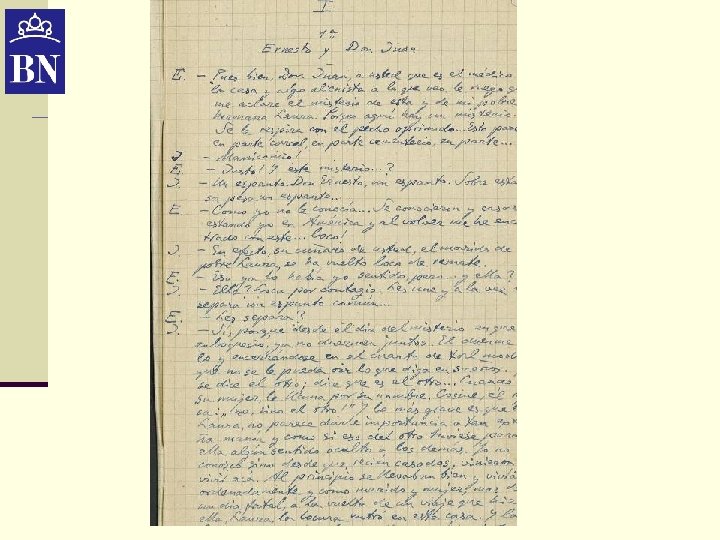 BN
I
1ª
Ernesto y Don Juan
E. – Pues bien Don Juan, a usted que es el médico
la casa y algo alienista a lo que veo, le ruego q
me aclare el misterio de esta y de mi pobre
hermana Laura. Porque aquí hay un misterio.
Se le respira con el pecho oprimido... Esto par
en parte carcel, en parte cementerio, en parte...
J. – Manicomio!
E. – Justo! Y este misterio...?
J. – Un espanto. Don Ernesto, un espanto. Sobre esta
sa pesa un espanto..
E – Como yo no le conocía... Se conocieron y casar
estando yo en América y al volver me he enc
trado con este... loco!
J. – En efecto, su cuñado de usted, el marido de
pobre Laura, se ha vuelto loco de remate.
E. – Eso ya lo había yo sentido, pero.. y ella?
J. – Ella? Loca por contagio. Les une y a la vez
separa un espanto común...
E. – Les separa!?
J. – Sí, porque desde el día del misterio en que
enloqueció, ya no duermen juntos. Él duerme
lo y encerrándose en el cuarto de tal modo
que no se le pueda oír lo que diga en sueños.
se dice el otro; dice que es el otro... Cuando
su mujer le llama por su nombre, Cosme, él
ca: "no, sino el otro!" Y lo más grave es que
Laura, no parece darle importancia a tan
ña manía y como si eso del otro tuviese para
ella algún sentido oculto a los demas. Yo no
conozco sino desde que, recien casados, vinieron
vivir acá. Al principio se llevaban bien y vivían
ordenadamente y como marido y mujer mas
un día fatal, a la vuelta de un viaje que hizo
ella, Laura, la locura entró en esta casa. Y la